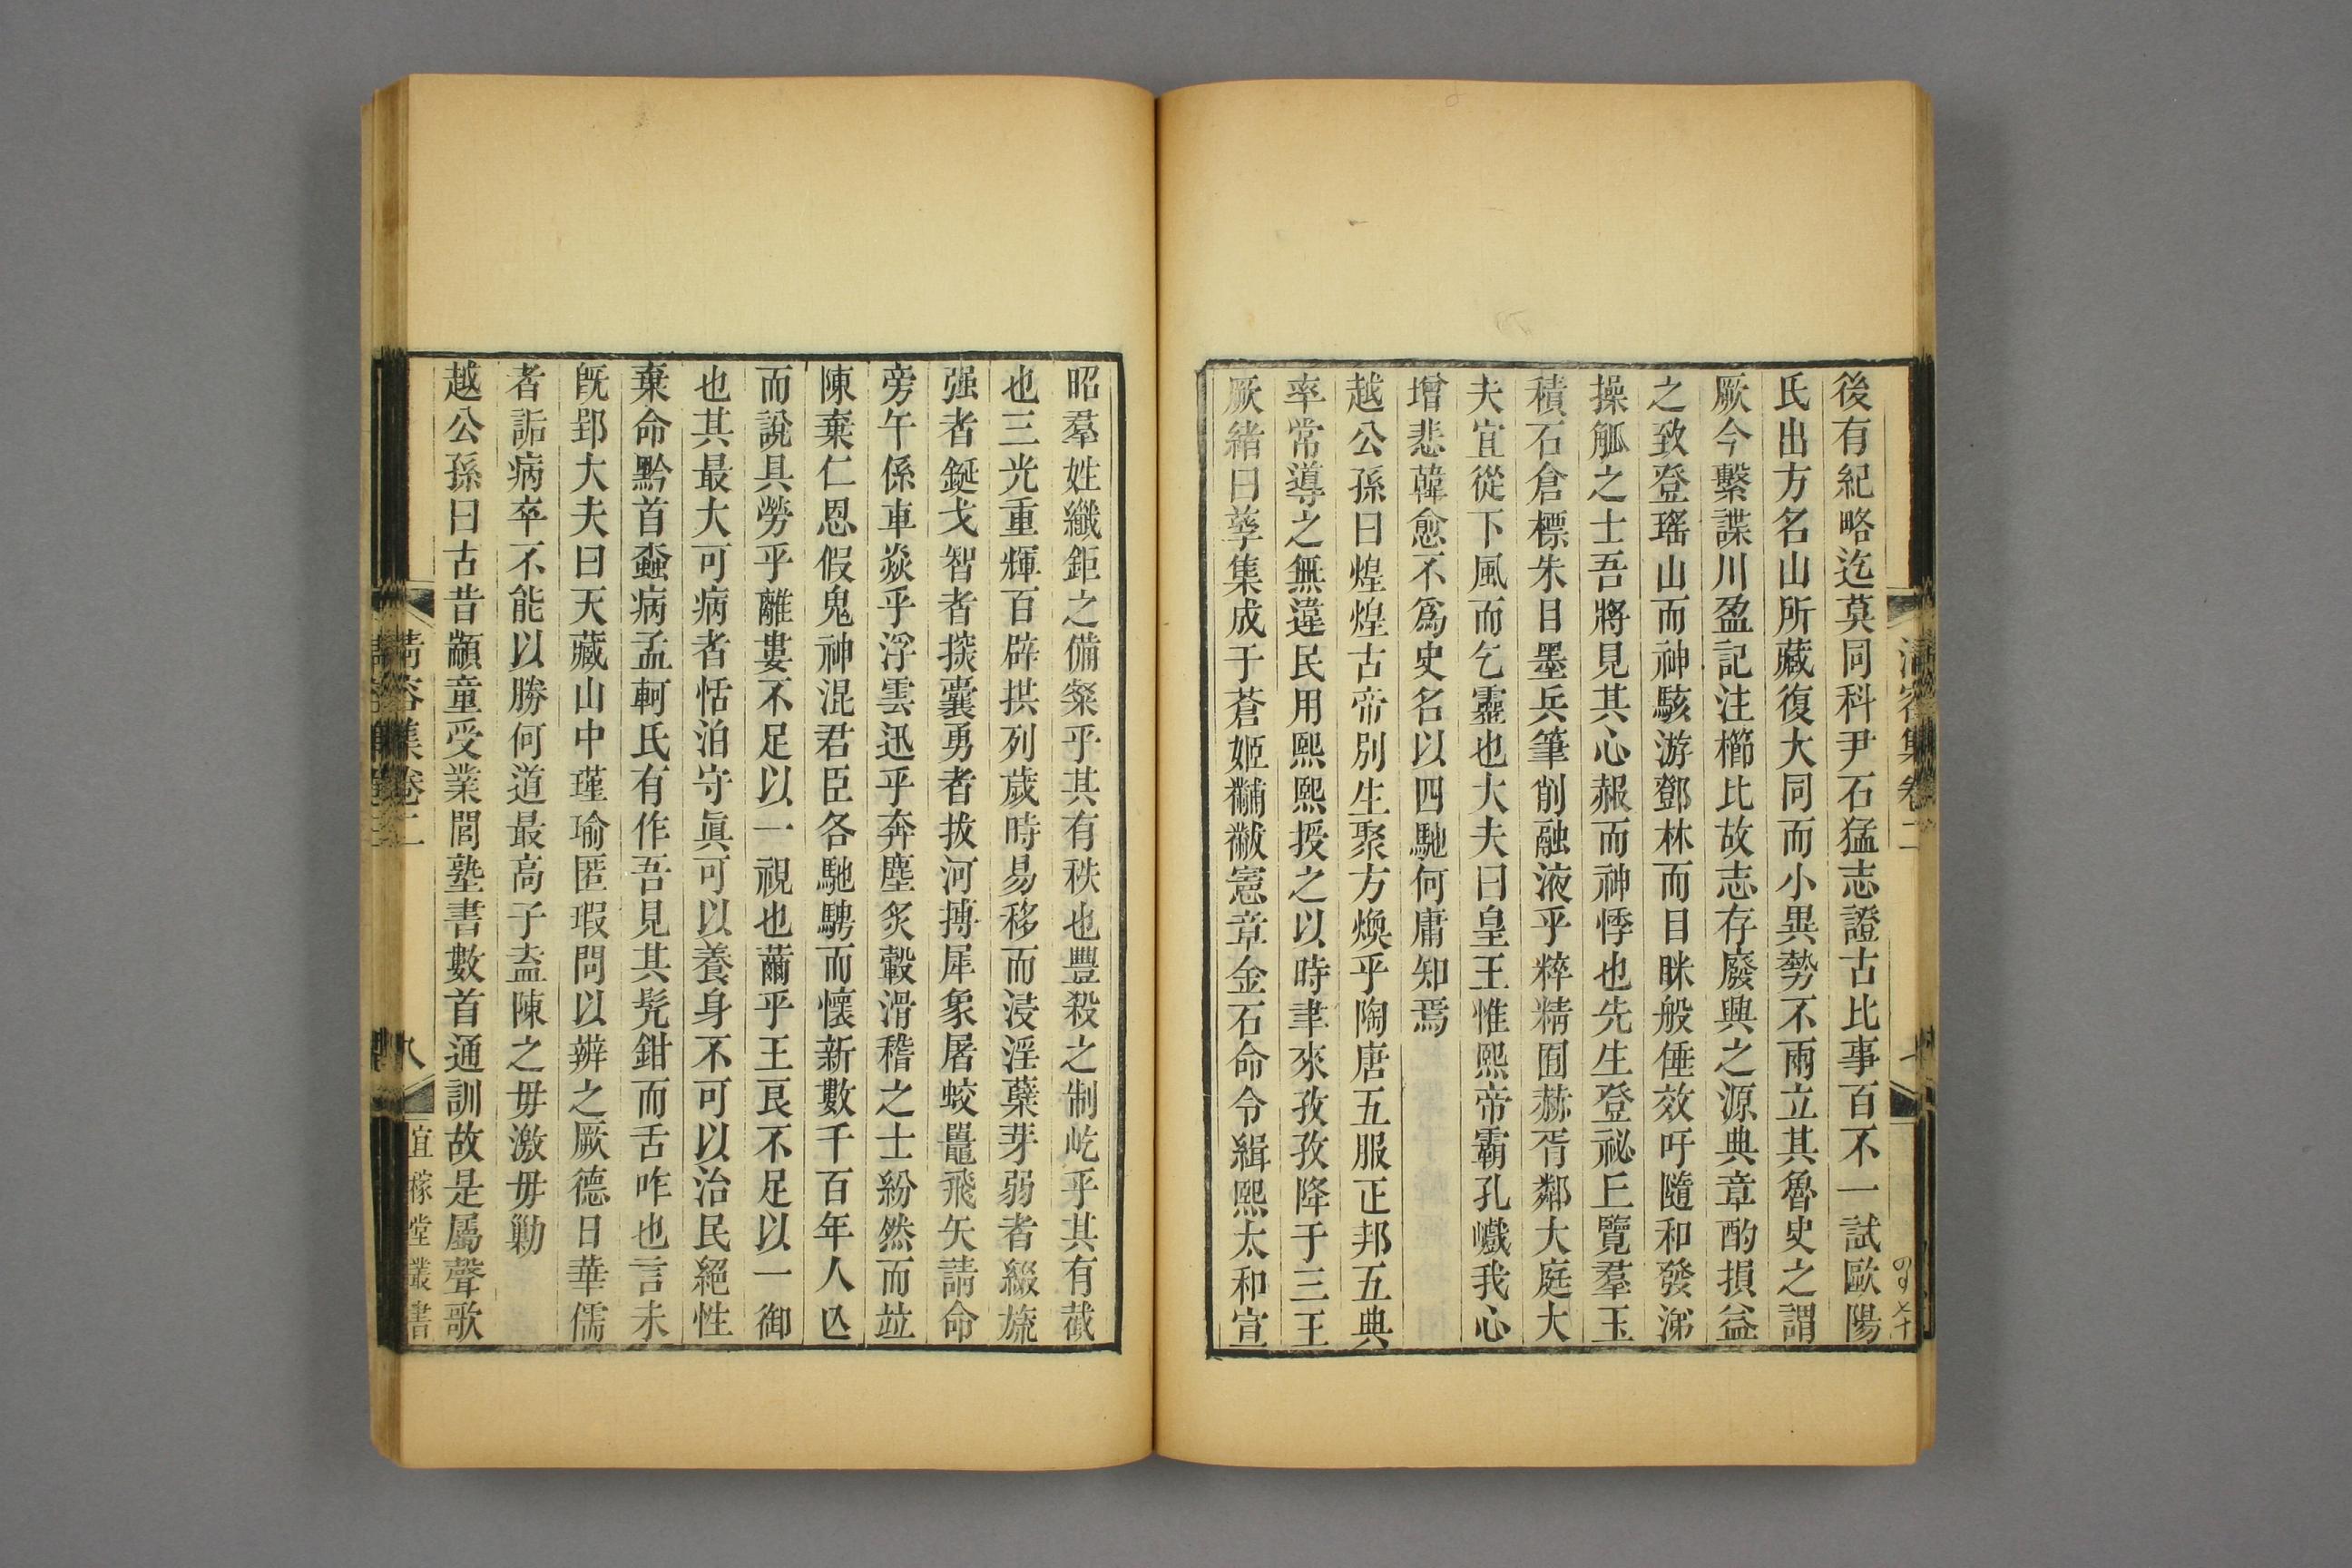 後有紀略迄莫同科尹石猛志證古比事百不一試歐陽
氏出方名山所藏復大同而小異勢不兩立其魯史之謂
厥今繫諜川盈記注櫛比故志存廢興之源典章酌損益
之致登瑤山而神駭游鄧林而目眯般倕效吁隨和發涕
操觚之士吾將見其心赧而神悸也先生登祕丘覽羣玉
積石倉標朱目墨兵筆削融液乎粹精囿赫胥鄰大庭大
夫宜從下風而乞靈也大夫曰皇王惟熙帝霸孔巇我心
增悲韓愈不爲史名以四馳何庸知焉
越公孫曰煌煌古帝別生聚方煥乎陶唐五服正邦五典
率常導之無違民用熙熙授之以時聿來孜孜降于三王
厥緒曰孳集成于蒼姬黼黻憲章金石命令緝熙太和宣
昭羣姓纖鉅之備粲乎其有秩也豐殺之制屹乎其有截
也三光重輝百辟拱列歲時易移而浸淫蘖芽弱者綴旒
强者鋋戈智者掞囊勇者拔河搏犀象屠蛟鼉飛矢請命
旁午係車焱乎浮雲迅乎奔塵炙轂滑稽之士紛然而竝
陳棄仁恩假鬼神混君臣各馳騁而懷新數千百年人亾
而說具勞乎離婁不足以一視也薾乎王良不足以一御
也其最大可病者恬泊守眞可以養身不可以治民絕性
棄命黔首蠹病孟軻氏有作吾見其髡鉗而舌咋也言未
旣郢大夫曰天藏山中瑾瑜匿瑕問以辨之厥德日華儒
者詬病卒不能以勝何道最高子盍陳之毋激毋勦
越公孫曰古昔顓童受業閭塾書數首通訓故是屬聲歌
清容集卷二
八
宜稼堂叢書